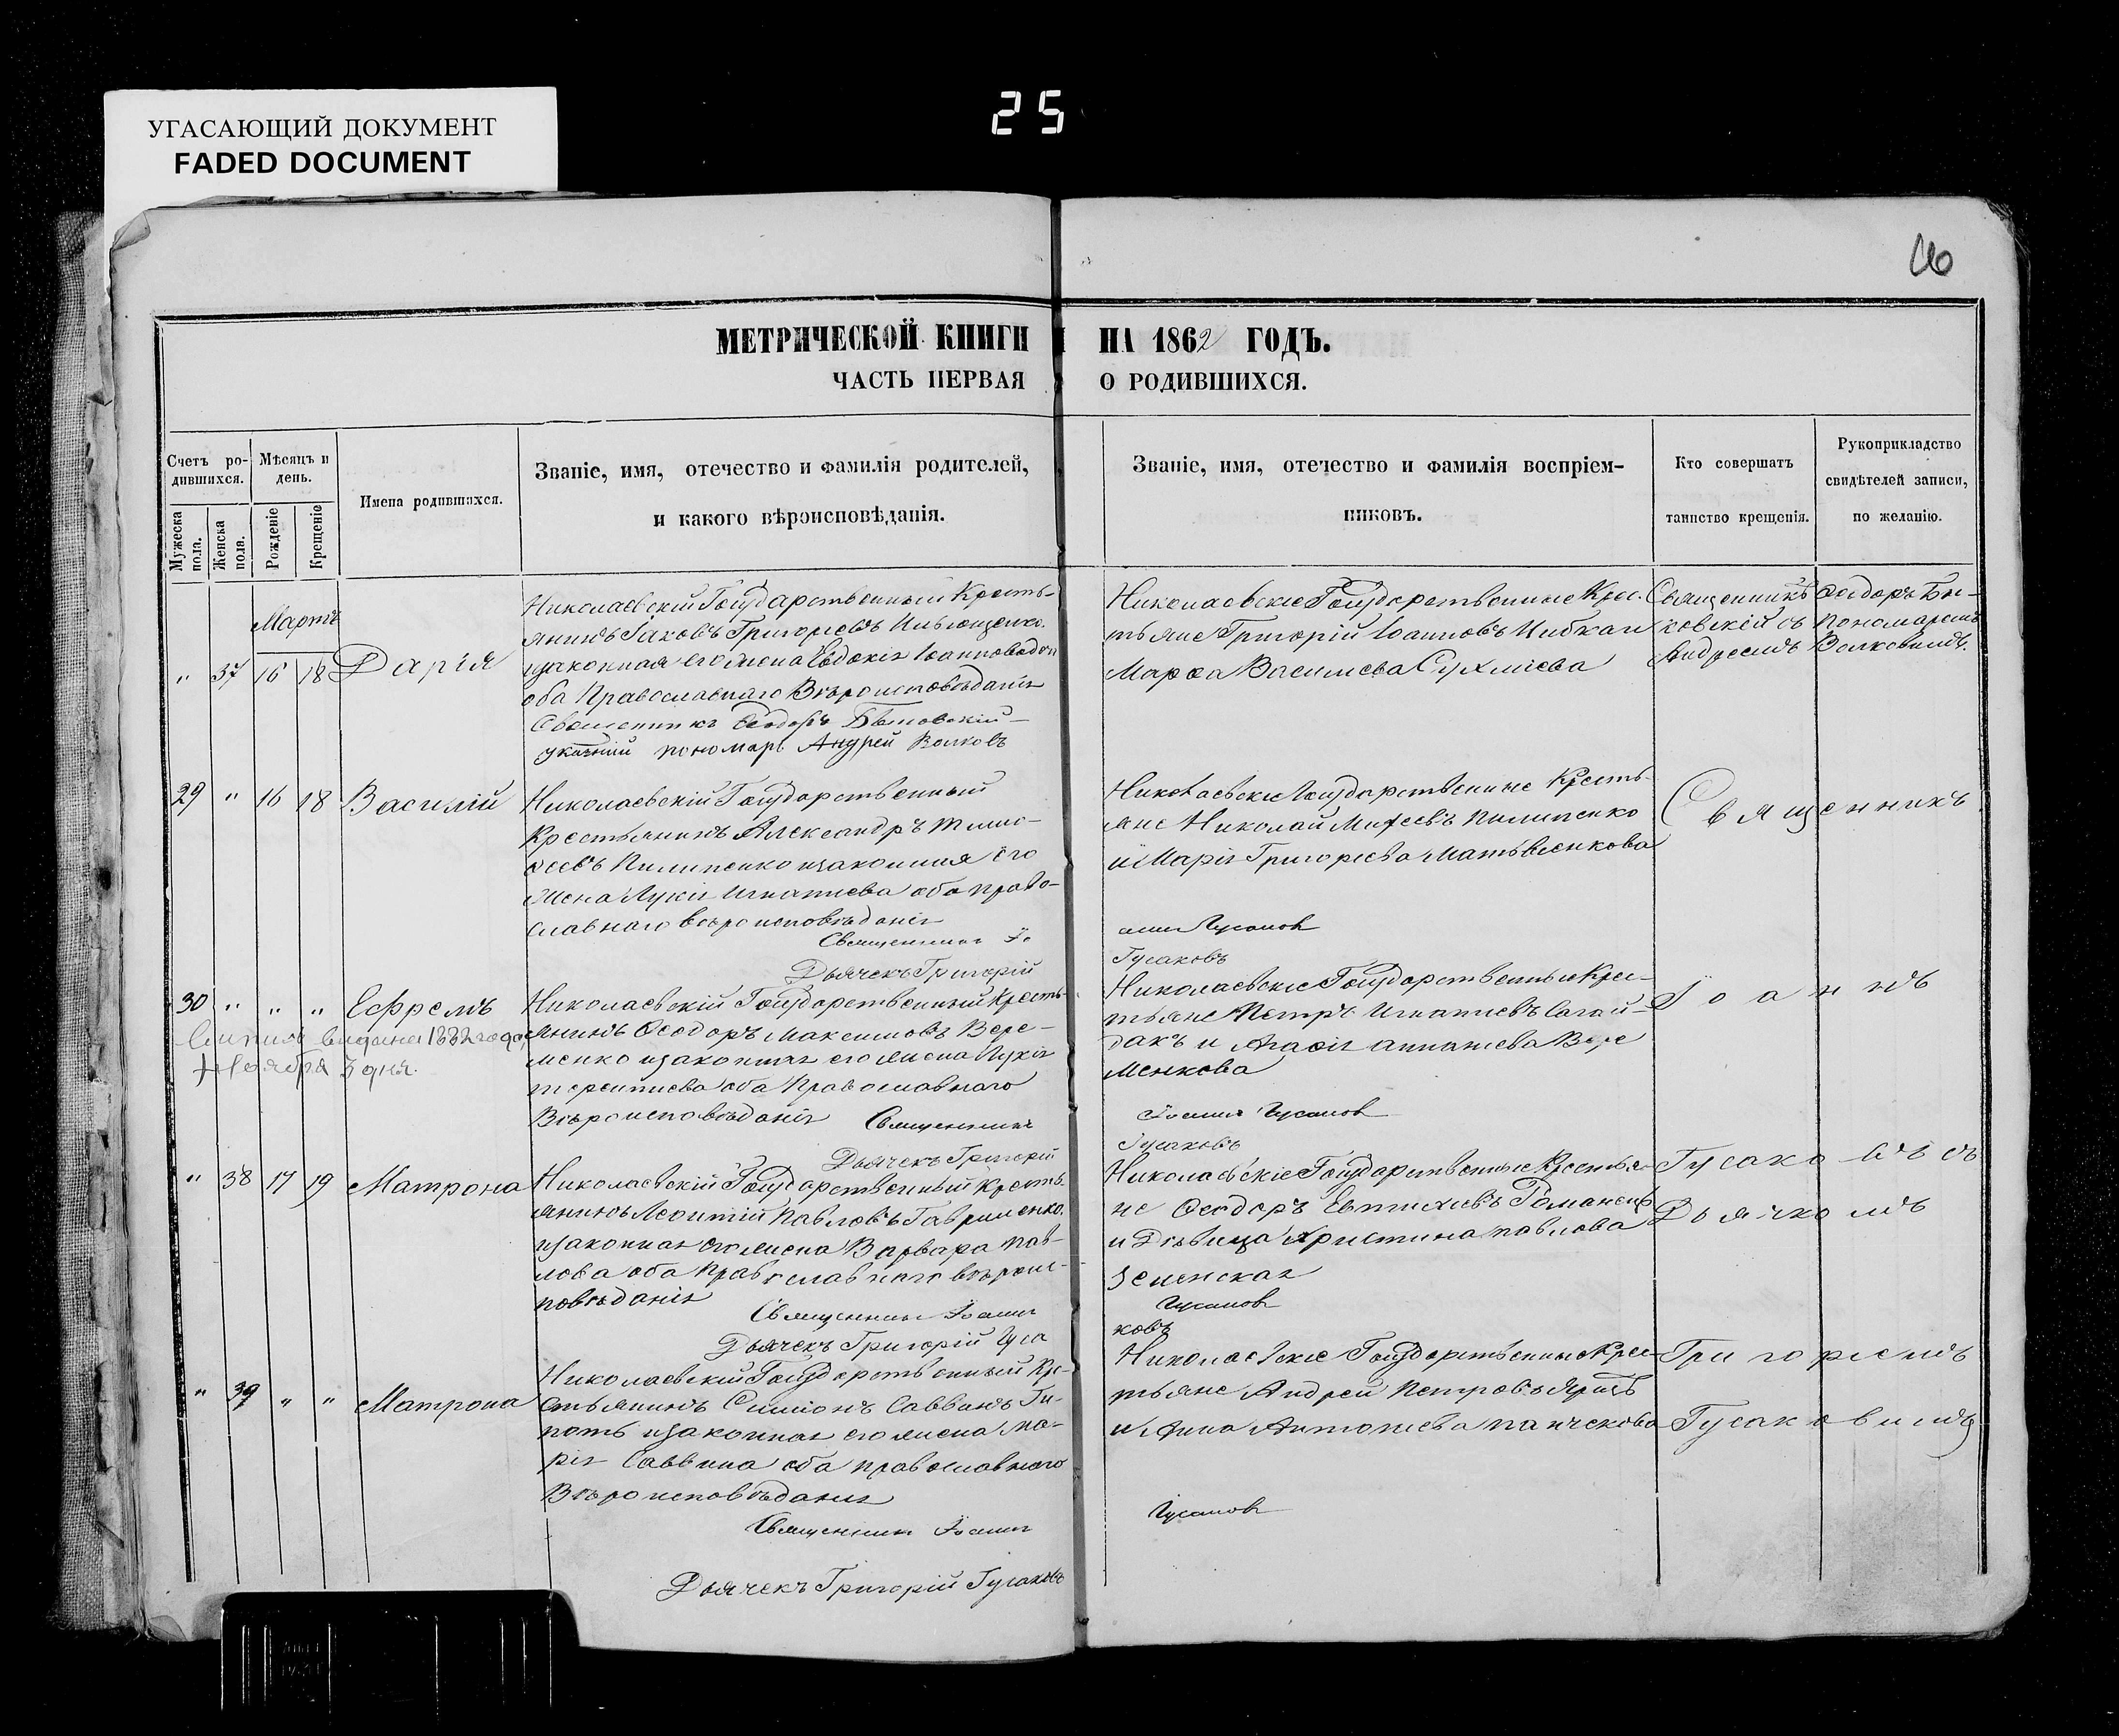 УГАСАЮЩИЙ ДОКУМЕНТ
FADED DOCUMENT
25
МЕТРИЧЕСКОЙ КНИГИ НА 1862 ГОДЪ.
ЧАСТЬ ПЕРВАЯ О РОДИВШИХСЯ.
Счетъ ро-
дившихся.
Мужеска пола.
Женска пола.
Мѣсяцъ и
день.
Рожденіе
Крещеніе
Имена родившихся.
Званіе, имя, отечество и фамилія родителей,
и какого вѣроисповѣданія.
Званіе, имя, отечество и фамилія воспріем-
никовъ.
Кто совершатъ
таинство крещенія.
Рукоприкладство
свидѣтелей записи,
по желанію.
Мартъ
" 37 16 18 Дарія
Николаевскій Государственный Кресть-
янинъ Іаковъ Григоріевъ
изаконная его жена Евдокія Іоаннова
оба Православнаго Вѣроисповѣданія
Священникъ Ѳеодоръ
пономарь Андрей Волковъ
Николаевскіе Государственные Крес-
тьяне Григорій Іоанновъ
Марѳа Василиева
Священникъ Ѳеодоръ
съ Пономаремъ
Андреемъ Волковымъ.
29 " 16 18 Василій
Николаевскій Государственный
Крестьянинъ Александръ Тимо-
ѳеевъ Пилипенко изаконная его
жена Лукія Игнатиева оба право-
славнаго вѣроисповѣданія
Священникъ Іо
Дьячекъ Григорій
Николаевскіе Государственные Кресть-
яне Николай Пилипенко
и Марія Григориева Матвѣенкова
аннъ Гусаковъ
Гусаковъ
Священникъ
30 " " " Ефремъ
выдана 1882 года
Ноября 3 дня.
Николаевскій Государственный Кресть-
янинъ Ѳеодоръ Максимовъ Вере-
менко изаконная его жена Лукія
терентиева оба Православнаго
Вѣроисповѣданія Священникъ
Дьячекъ Григорій
Николаевскіе Государственные Крес-
тьяне Петръ Игнатиевъ Сагай-
дакъ и Агафія Вере
менкова
Іоаннъ Гусаковъ
Гусаковъ
Іоаннъ
" 38 17 19 Матрона
Николаевскій Государственный Кресть-
янинъ Леонтій Павловъ Гавриленко.
изаконная его жена Варвара Пав-
лова оба Православнаго вѣроис-
повѣданія
Священникъ Іоаннъ
Дьячекъ Григорій Гуса
Николаевскіе Государственные Крестья-
не Ѳеодоръ Евтихиевъ Романенко
и Дѣвица Христина павлова
Зеленская
Гусаковъ
ковъ
Гусаковъ съ
Дьячкомъ
" 39 " " Матрона
Николаевскій Государственный Кре-
стьянинъ Симіонъ Саввинъ
изаконная его жена Ма-
рія Саввина оба православнаго
Вѣроисповѣданія
Священникъ Іоаннъ
Дьячекъ Григорій Гусаковъ
Николаевскіе Государственные Крес-
тьяне Андрей Петровъ
и Анна Антониева
Гусаковъ
Григоріемъ
Гусаковимъ